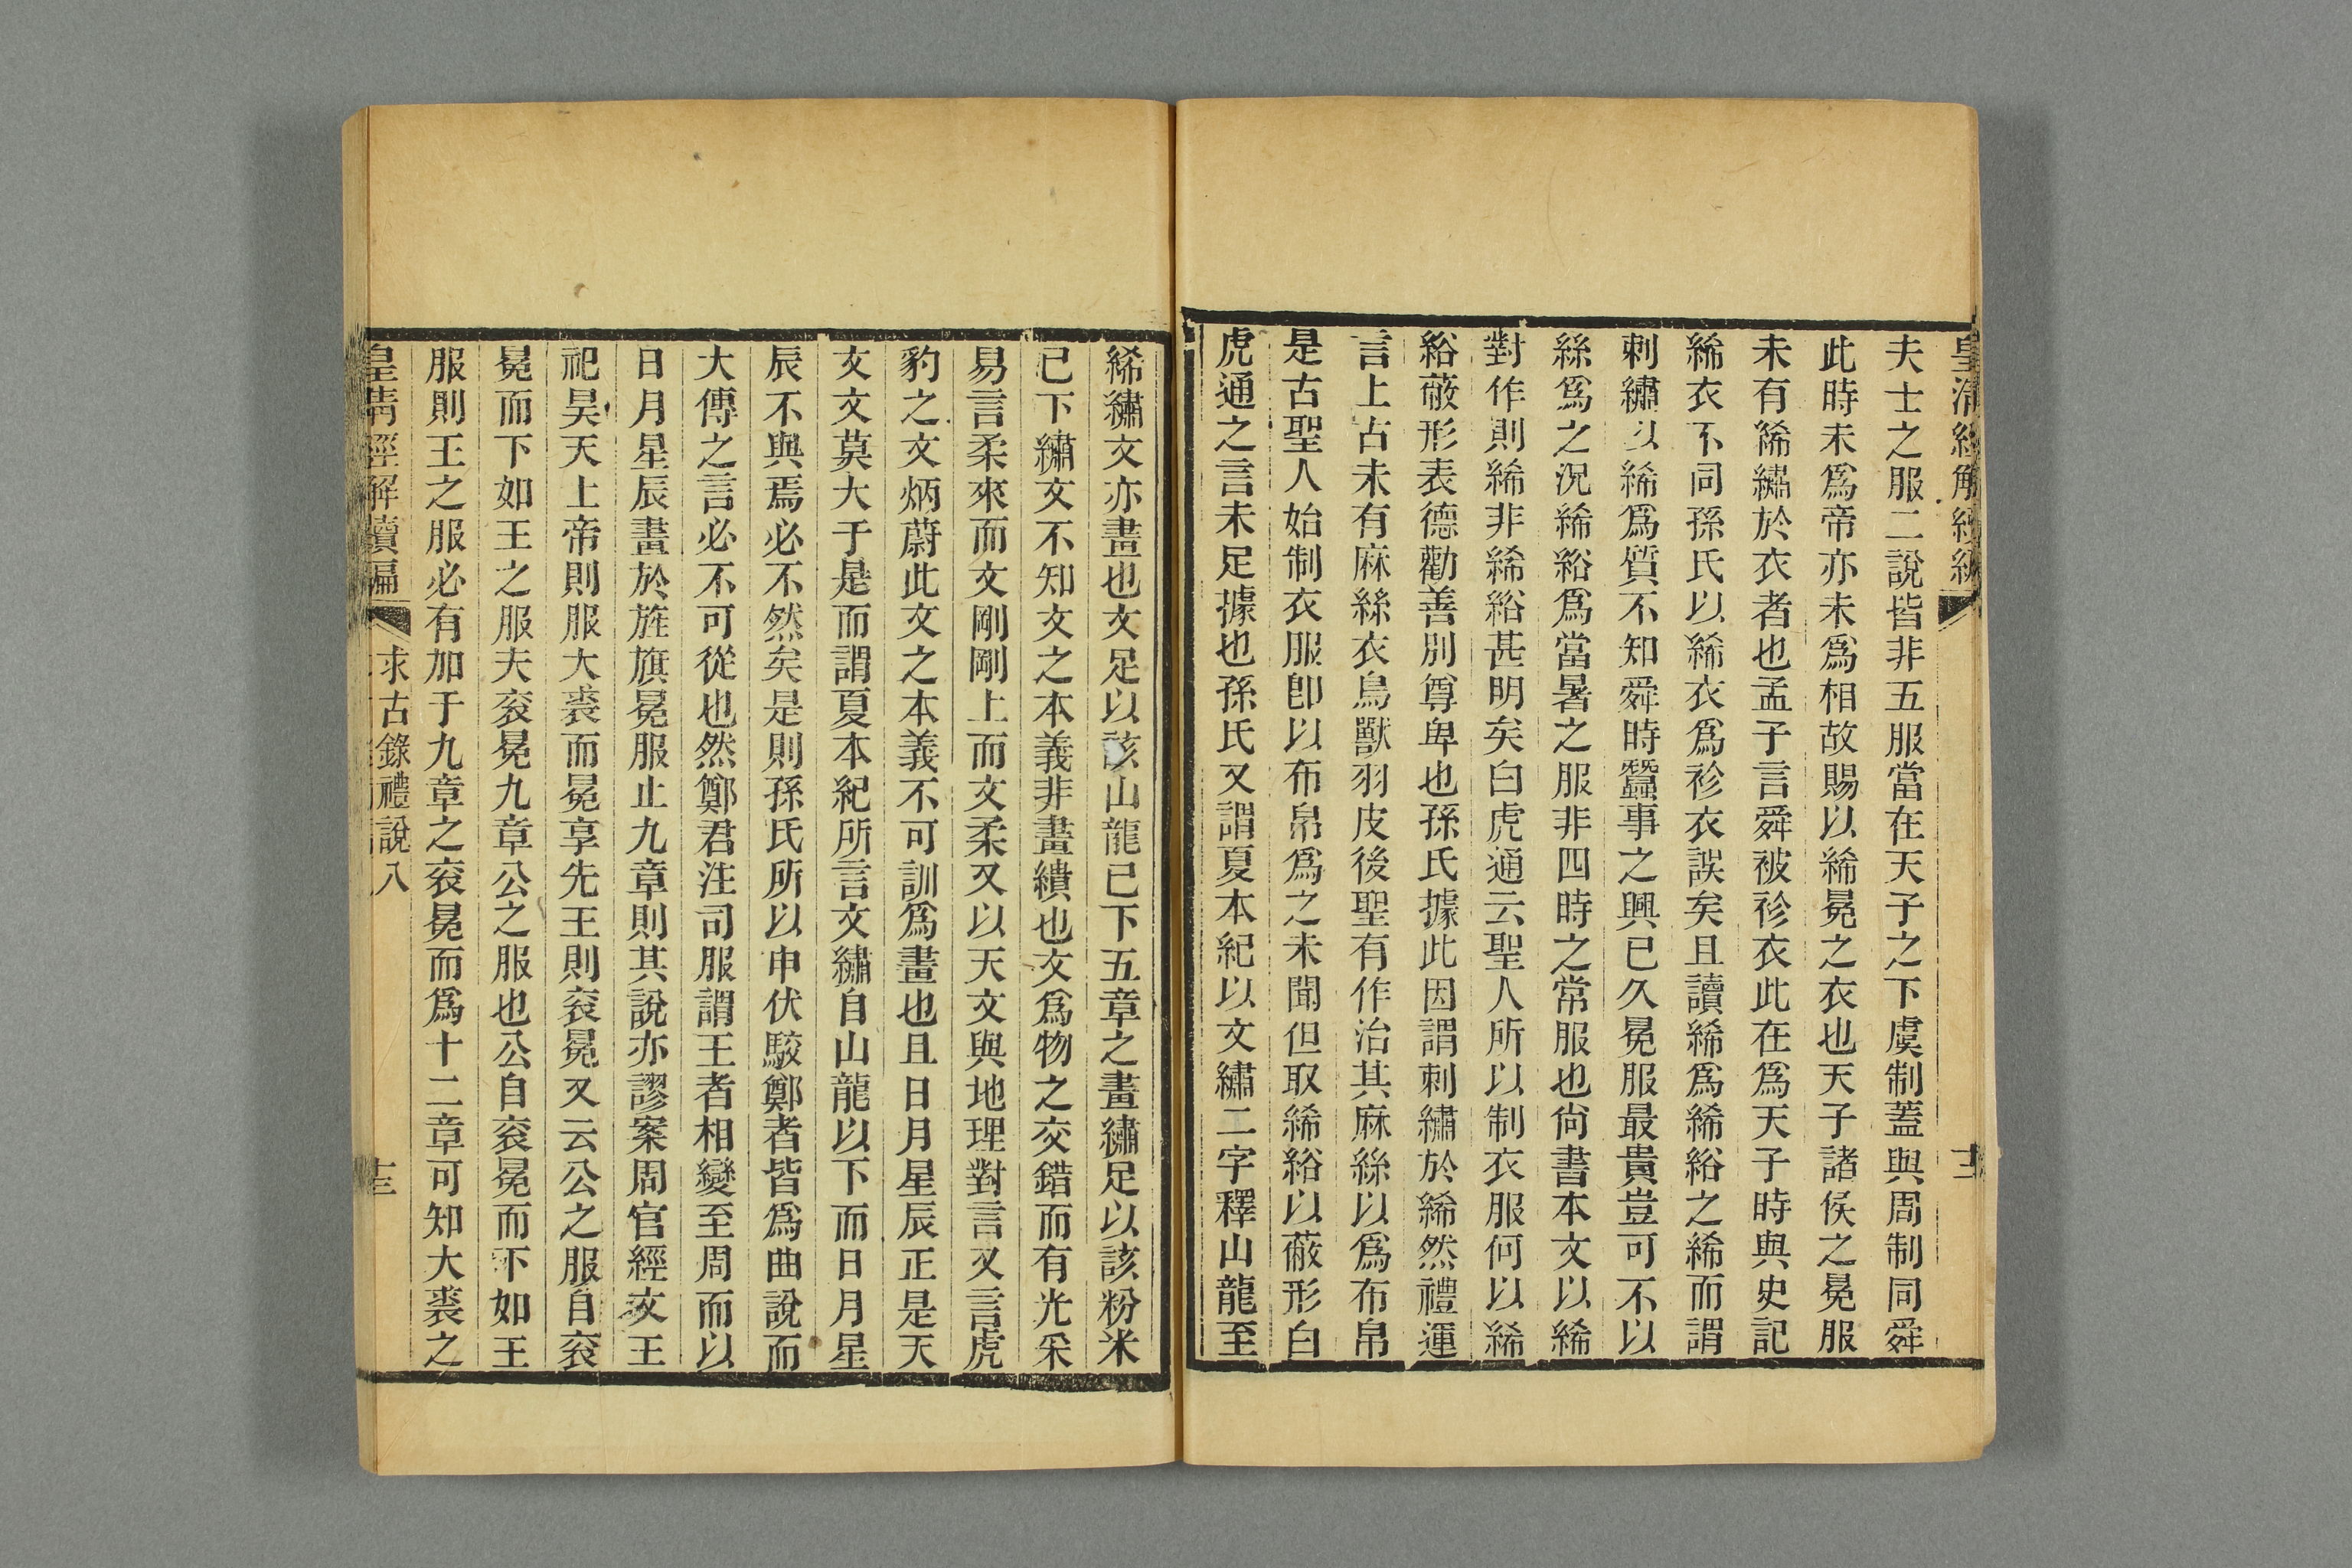 皇清經解續編
十二
夫士之服二說皆非五服當在天子之下虞制蓋與周制同舜
此時未爲帝亦未爲相故賜以絺冕之衣也天子諸侯之冕服
未有絺繡於衣者也孟子言舜被袗衣此在爲天子時與史記
絺衣不同孫氏以絺衣爲袗衣誤矣且讀絺爲絺綌之絺而謂
刺繡以絺爲質不知舜時蠶事之興已久冕服最貴豈可不以
絲爲之況絺綌爲當暑之服非四時之常服也尚書本文以絺
對作則絺非絺綌甚明矣白虎通云聖人所以制衣服何以絺
綌蔽形表德勸善別尊卑也孫氏據此因謂刺繡於絺然禮運
言上古未有麻絲衣鳥獸羽皮後聖有作治其麻絲以爲布帛
是古聖人始制衣服卽以布帛爲之未聞但取絺綌以蔽形白
虎通之言未足據也孫氏又謂夏本紀以文繡二字釋山龍至
絺繡文亦畫也文足以該山龍已下五章之畫繡足以該粉米
已下繡文不知文之本義非畫繢也文爲物之交錯而有光采
易言柔來而文剛剛上而文柔又以天文與地理對言又言虎
豹之文炳蔚此文之本義不可訓爲畫也且日月星辰正是天
文文莫大于是而謂夏本紀所言文繡自山龍以下而日月星
辰不與焉必不然矣是則孫氏所以申伏駮鄭者皆爲曲說而
大傳之言必不可從也然鄭君注司服謂王者相變至周而以
日月星辰畫於旌旗冕服止九章則其說亦謬案周官經文王
祀昊天上帝則服大裘而冕享先王則袞冕又云公之服自袞
冕而下如王之服夫袞冕九章公之服也公自袞冕而下如王
服則王之服必有加于九章之袞冕而爲十二章可知大裘之
皇清經解續編
求古錄禮說八
十三